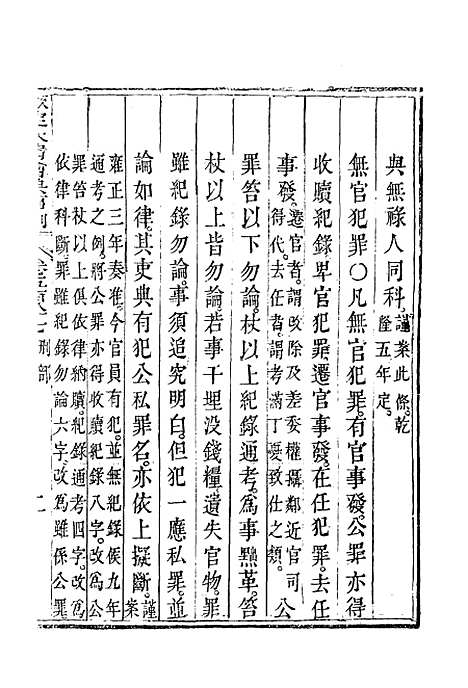 與無祿人同科。謹案此條。乾
隆五年定。
無官犯罪〇凡無官犯罪。有官事發。公罪亦得
收贖紀錄。卑官犯罪。遷官事發。在任犯罪。去任
事發。遷官者。謂改除及差委權攝鄰近官司
去任者。謂考滿丁憂致仕之類。公
罪笞以下勿論。杖以上紀錄通考。為事黜革。笞
杖以上皆勿論。若事干埋没錢糧。遺失官物。罪
雖紀錄勿論。事須追究明白。但犯一應私罪。並
論如律。其吏典有犯公私罪名。亦依上擬斷。謹案
雍正三年奏准。今官員有犯。並無紀錄候九年
通考之例。將公罪亦得收贖紀錄八字。改為公
罪笞杖以上俱依律收贖。紀錄通考四字。改為
依律科斷。罪雖紀錄勿論六字。改為雖係公罪
刑部